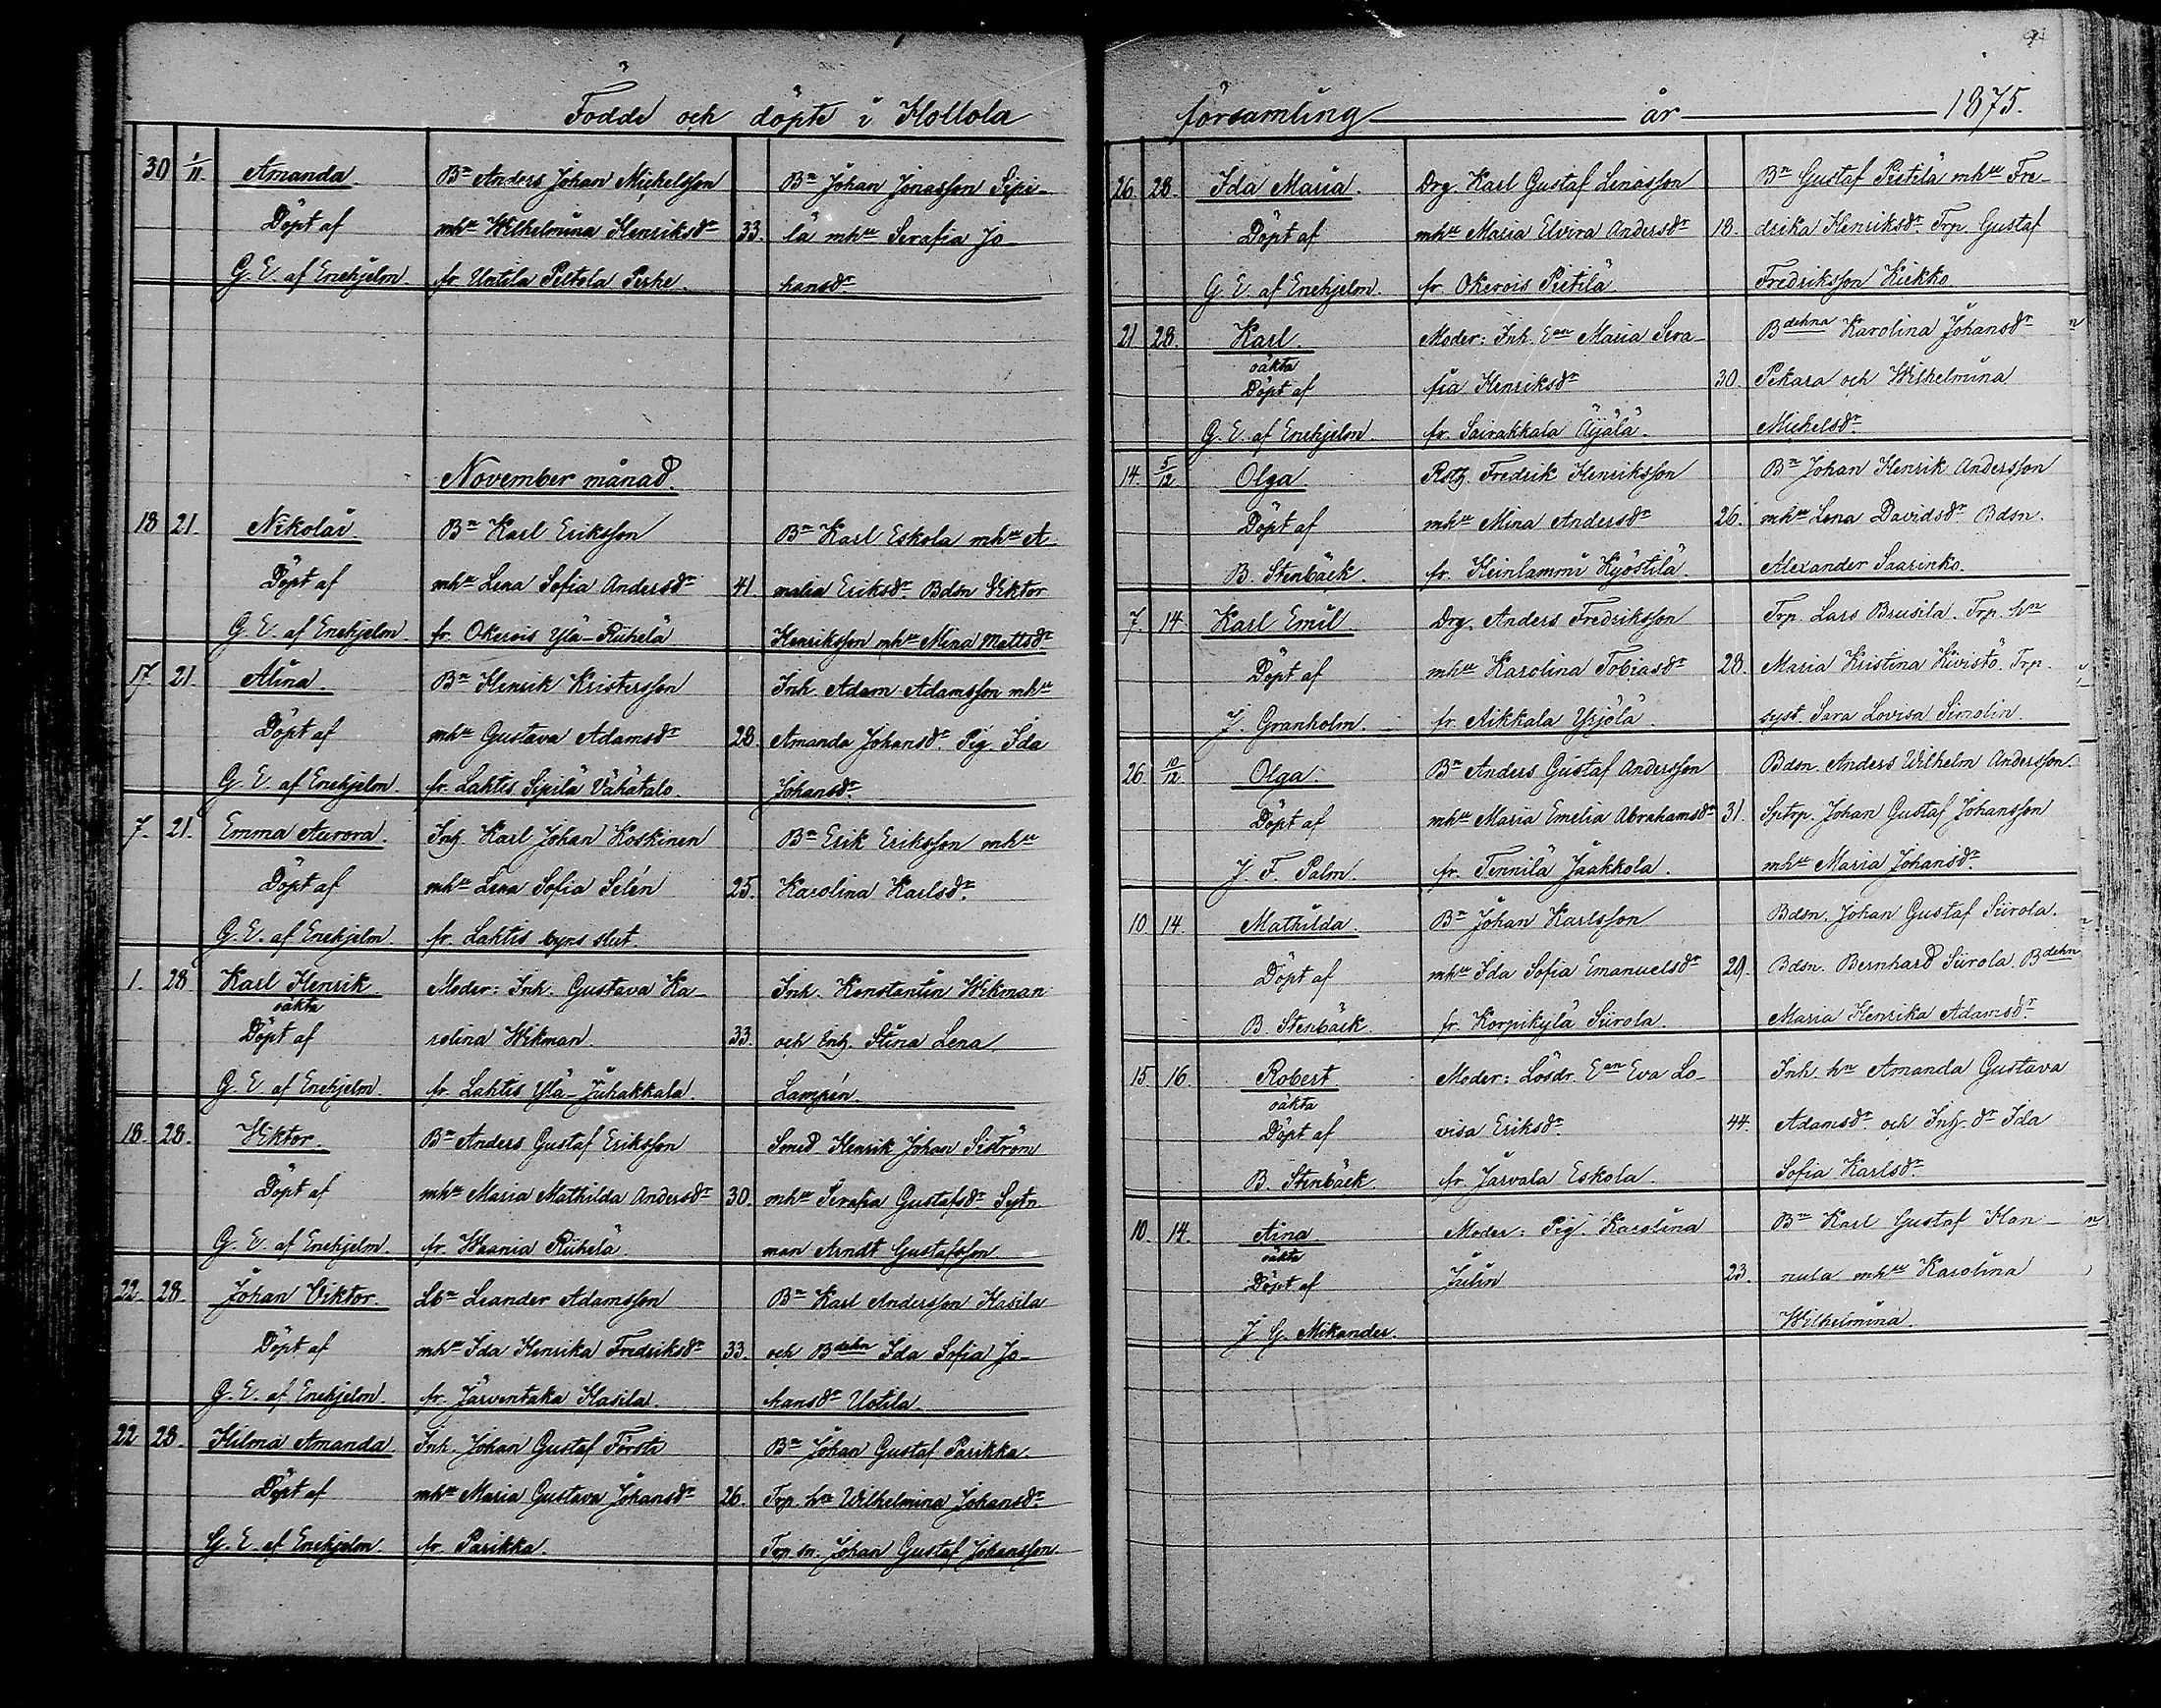 Födde och döpte i Hollola
30 1/11. Amanda. Bn Anders Johan Michelsson Bn Johan Jonasson Sipi-
Döpt af mhu Wilhelmina Henriksdr 33. lä mhu Serafia Jo-
G. E. af Enehjelm. fr. Untila Peltola Perhe. hansdr
November månad.
18 21. Nikolai. Bn Karl Eriksson Bn Karl Eskola mhu A-
Döpt af mhu Lena Sofia Andersdr 41 malia Eriksdr. Bdsn Viktor
G. E. af Enehjelm. fr. Okerois Ylä-Riihelä Henriksson mhu Mina Mattsdr
17. 21. Alina. Bn Henrik Kristersson Inh. Adam Adamsson mhu
Döpt af mhu Gustava Adamsdr 28. Amanda Johansdr. Pig. Ida
G. E. af Enehjelm. fr. Lahtis Sipilä Vähätalo. Johansdr.
7. 21. Emma Aurora. Inh. Karl Johan Koskinen Bn Erik Eriksson mhu
Döpt af mhu Lena Sofia Selén 25. Karolina Karlsdr.
G. E. af Enehjelm. fr. Lahtis byns slut.
1. 28 Karl Henrik Moder: Inh. Gustava Ka- Inh. Konstantin Wikman
oäkta
Döpt af rolina Wikman. 33. och Enh. Stina Lena
G. E. af Enehjelm. fr. Lahtis Ylä-Juhakkala. Lampén.
18. 28. Viktor. Bn Anders Gustaf Eriksson Smed Henrik Johan Siström
Döpt af mhu Maria Mathilda Andersdr 30. mhu Serafia Gustafsdr Sytn.
G. E. af Enehjelm. fr. Waania Riihelä man Arndt Gustafsson
22. 28. Johan Viktor. Lbn Leander Adamsson Bn Karl Andersson Hasila
Döpt af mhu Ida Henrika Fredriksdr 33. och Bdehn Ida Sofia Jo-
G. E. af Enehjelm. fr. Järventaka Hasila. hansdr Uotila.
22 28. Hilma Amanda. Inh. Johan Gustaf Försti Bn Johan Gustaf Parikka.
Döpt af mhu Maria Gustava Johansdr 26. Trp. hu Wilhelmina Johansdr
G. E. af Enehjelm. fr. Parikka. Trp sn. Johan Gustaf Johansson.
församling år 1875.
26. 28. Ida Maria. Drg. Karl Gustaf Linasson Bn Gustaf Pietilä mhu Fre-
Döpt af mhu Maria Elvira Andersdr 18. drika Henriksdr. Trp. Gustaf
G. E. af Enehjelm. fr. Okerois Pietilä Fredriksson Kiekko.
21 28. Karl. Moder: Inh. Ean Maria Sera- Bdehna Karolina Johansdr
oäkta
Döpt af fia Henriksdr 30. Pekara och Wilhelmina
G. E. af Enehjelm. fr. Sairakkala Äijälä. Michelsdr.
14. 5/12 Olga. Roth. Fredrik Henriksson Bn Johan Henrik Andersson
Döpt af mhu Mina Andersdr 26. mhu Lena Davidsdr. Bdsn.
B. Stenbäck. fr. Heinlammi Kyöstilä. Alexander Saarinko.
7. 14. Karl Emil Drg. Anders Fredriksson Trp. Lars Brusila. Trp. hn
Döpt af mhu Karolina Tobiasdr 28. Maria Kristina Kivistö. Trp.
J. Granholm. fr. Aikkala Yrjölä. syst. Sara Lovisa Simolin.
26 10/12 Olga. Bn Anders Gustaf Andersson Bdsn. Anders Wilhelm Andersson.
Döpt af mhu Maria Emelia Abrahamsdr 31. Sptrp. Johan Gustaf Johansson
J. F. Palm. fr. Tennilä Jaakkola. mhu Maria Johansdr.
10 14. Mathilda. Bn Johan Karlsson Bdsn. Johan Gustaf Siirola.
Döpt af mhu Ida Sofia Emanuelsdr 29. Bdsn. Bernhard Siirola. Bdehn
B. Stenbäck. fr. Korpikylä Siirola. Maria Henrika Adamsdr.
15 16. Robert. Moder: Lösdr. Ean Eva Lo- Inh. hn Amanda Gustava
oäkta
Döpt af visa Eriksdr. 44. Adamsdr. och Inh. dr Ida
B. Stenbäck. fr. Järvala Eskola. Sofia Karlsdr.
10. 14. Aina. Moder: Pig. Karolina Bn Karl Gustaf Han-
oäkta
Döpt af Julin 23. nula mhu Karolina
J. G. Mikander. Wilhelmina.